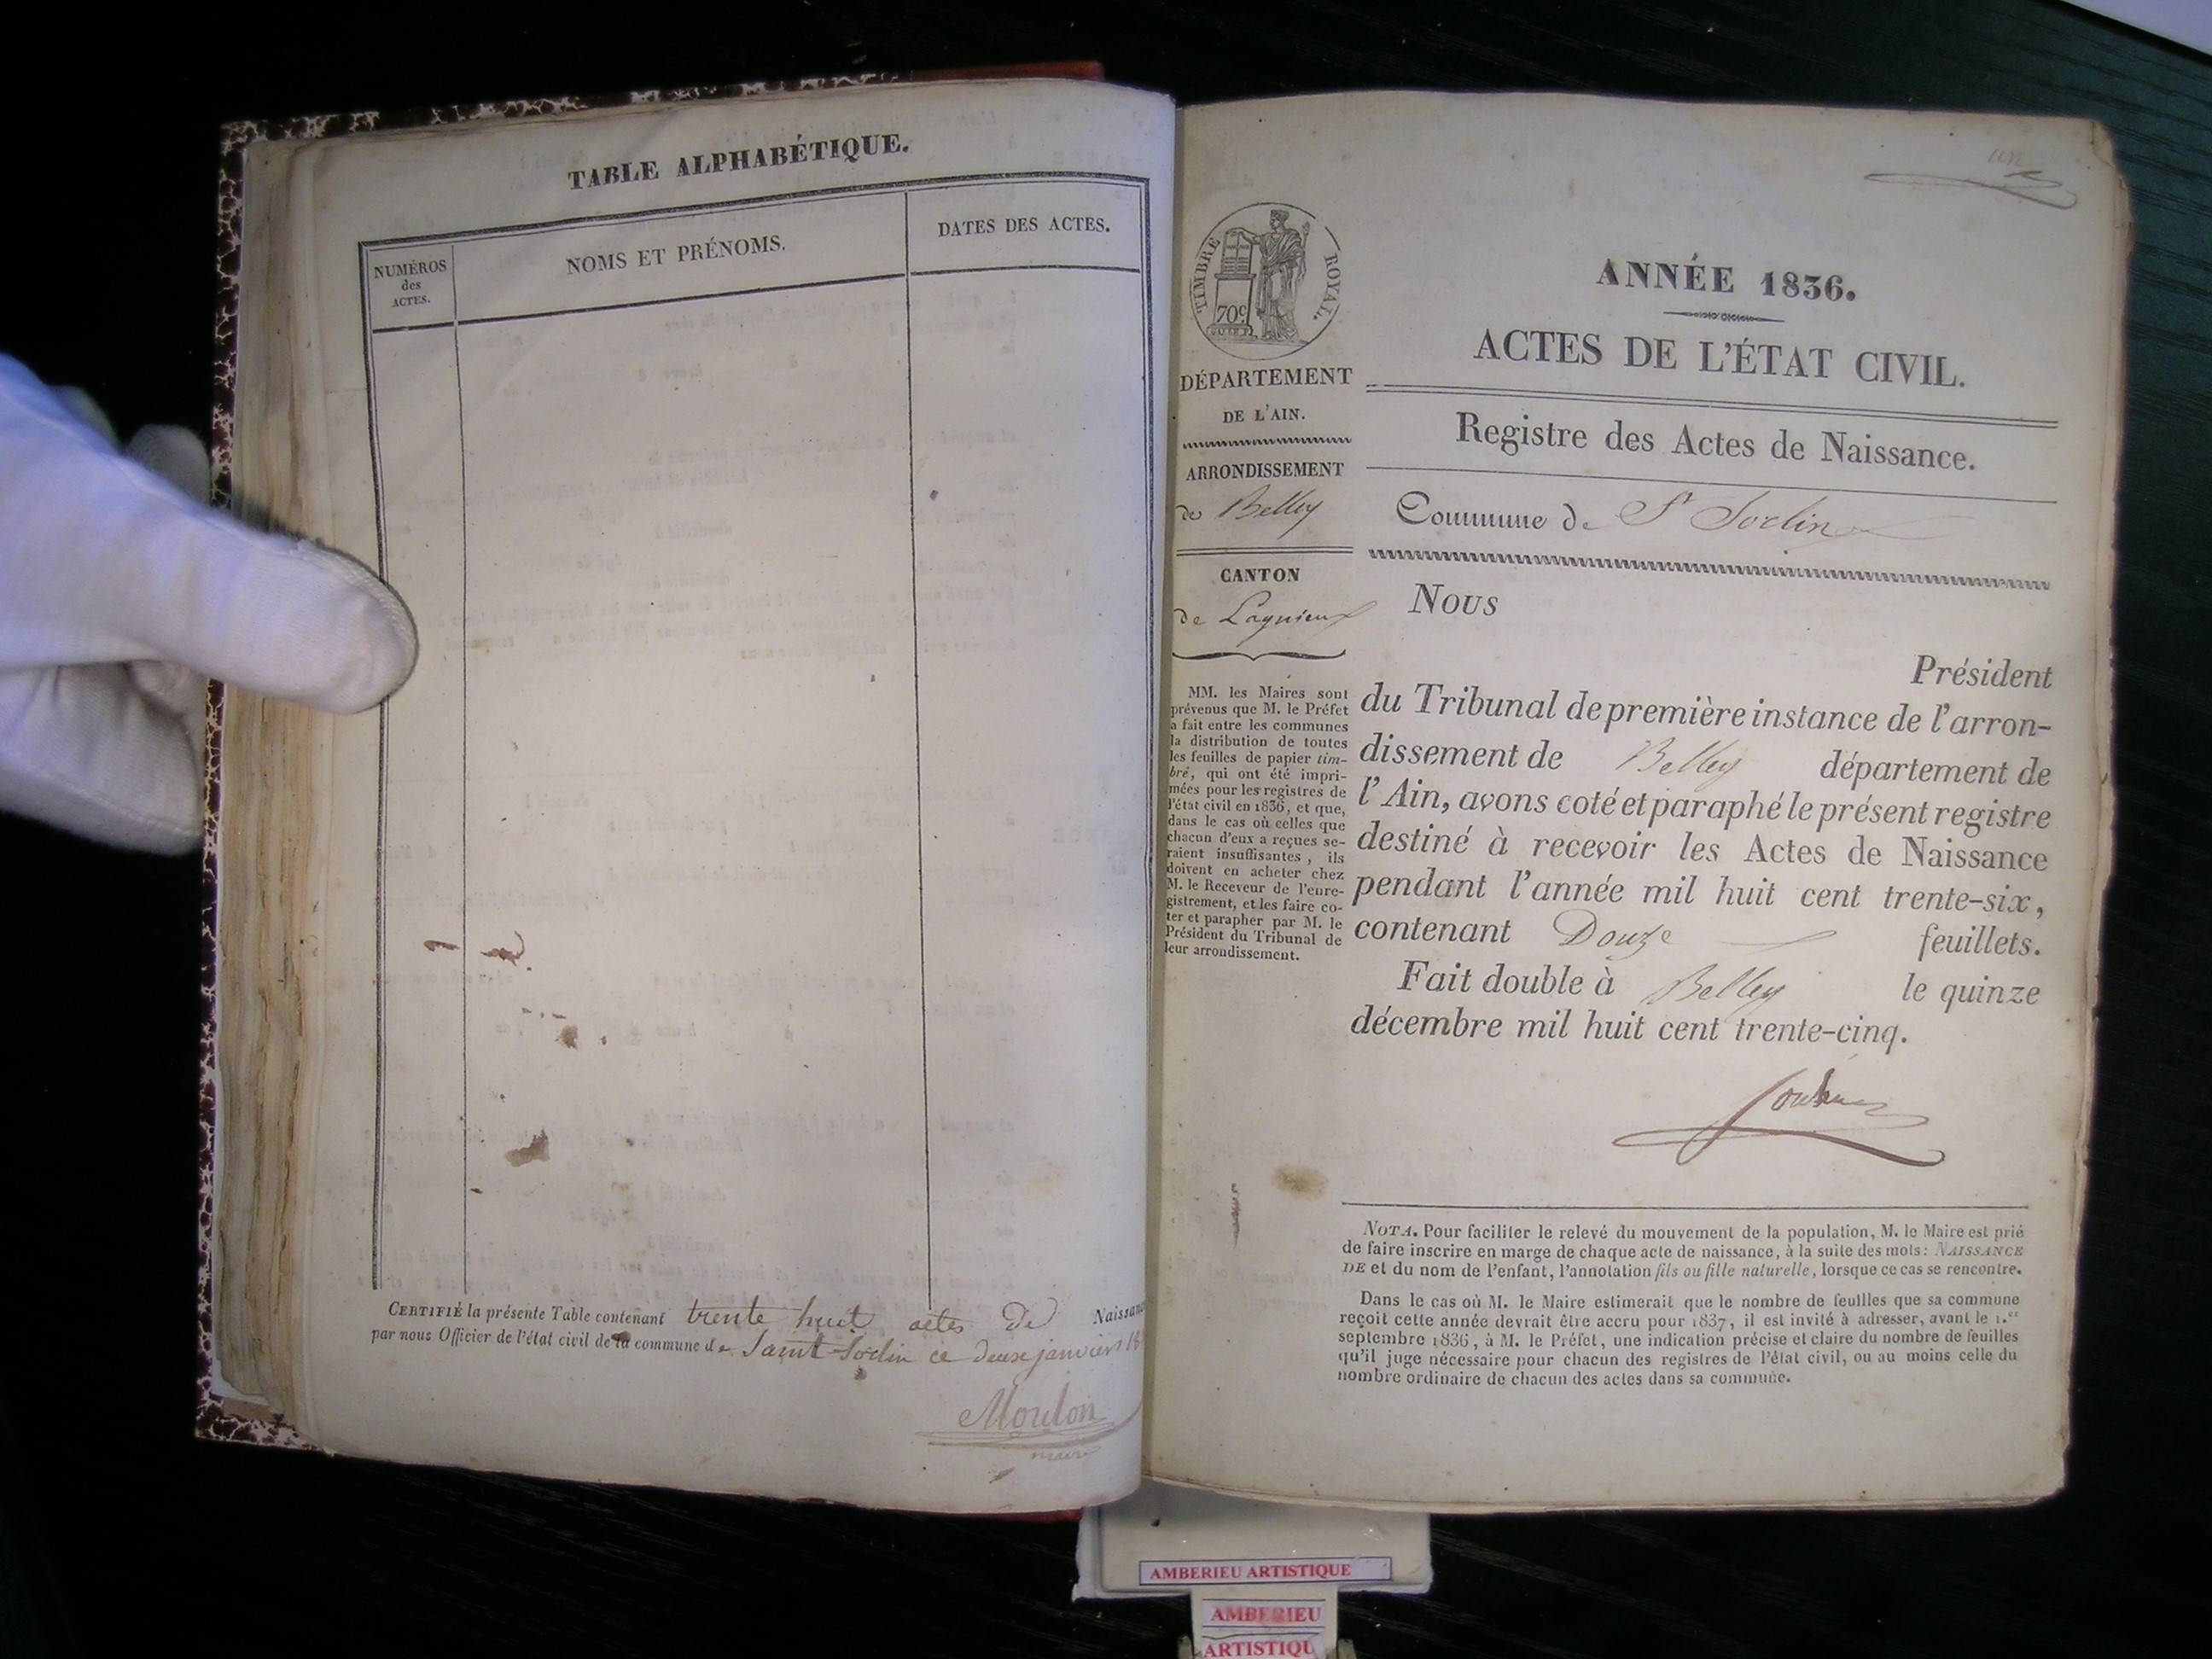 TABLE ALPHABÉTIQUE.
NUMÉROS
des
ACTES.
NOMS ET PRÉNOMS.
DATES DES ACTES.
CERTIFIÉ la présente Table contenant trente huit actes de Naissan
par nous Officier de l'état civil de la commune de Saint Sorlin ce deux janvier 18
Moulon
maire
un
TIMBRE ROYAL.
70c
DÉPARTEMENT
DE L'AIN.
ARRONDISSEMENT
de Belley
CANTON
de Lagnieux
MM. les Maires sont
prévenus que M. le Préfet
a fait entre les communes
la distribution de toutes
les feuilles de papier tim-
bré, qui ont été impri-
mées pour les registres de
l'état civil en 1836, et que,
dans le cas où celles que
chacun d'eux a reçues se-
raient insuffisantes, ils
doivent en acheter chez
M. le Receveur de l'enre-
gistrement, et les faire co-
ter et parapher par M. le
Président du Tribunal de
leur arrondissement.
ANNÉE 1836.
ACTES DE L'ÉTAT CIVIL.
Registre des Actes de Naissance.
Commune de St Sorlin
Nous
Président
du Tribunal de première instance de l'arron-
dissement de Belley département de
l'Ain, avons coté et paraphé le présent registre
destiné à recevoir les Actes de Naissance
pendant l'année mil huit cent trente-six,
contenant Douze feuillets.
Fait double à Belley le quinze
décembre mil huit cent trente-cinq.
NOTA. Pour faciliter le relevé du mouvement de la population, M. le Maire est prié
de faire inscrire en marge de chaque acte de naissance, à la suite des mots: NAISSANCE
DE et du nom de l'enfant, l'annotation fils ou fille naturelle, lorsque ce cas se rencontre.
Dans le cas où M. le Maire estimerait que le nombre de feuilles que sa commune
reçoit cette année devrait être accru pour 1837, il est invité à adresser, avant le 1.er
septembre 1836, à M. le Préfet, une indication précise et claire du nombre de feuilles
qu'il juge nécessaire pour chacun des registres de l'état civil, ou au moins celle du
nombre ordinaire de chacun des actes dans sa commune.
AMBERIEU ARTISTIQUE
AMBERIEU
ARTISTIQU